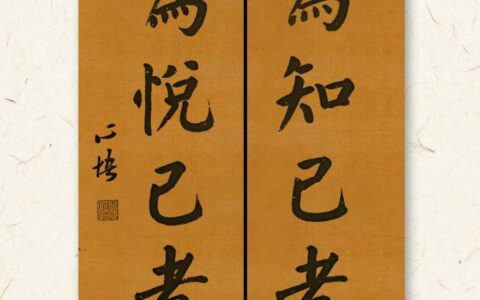 為知己者
為悅己者